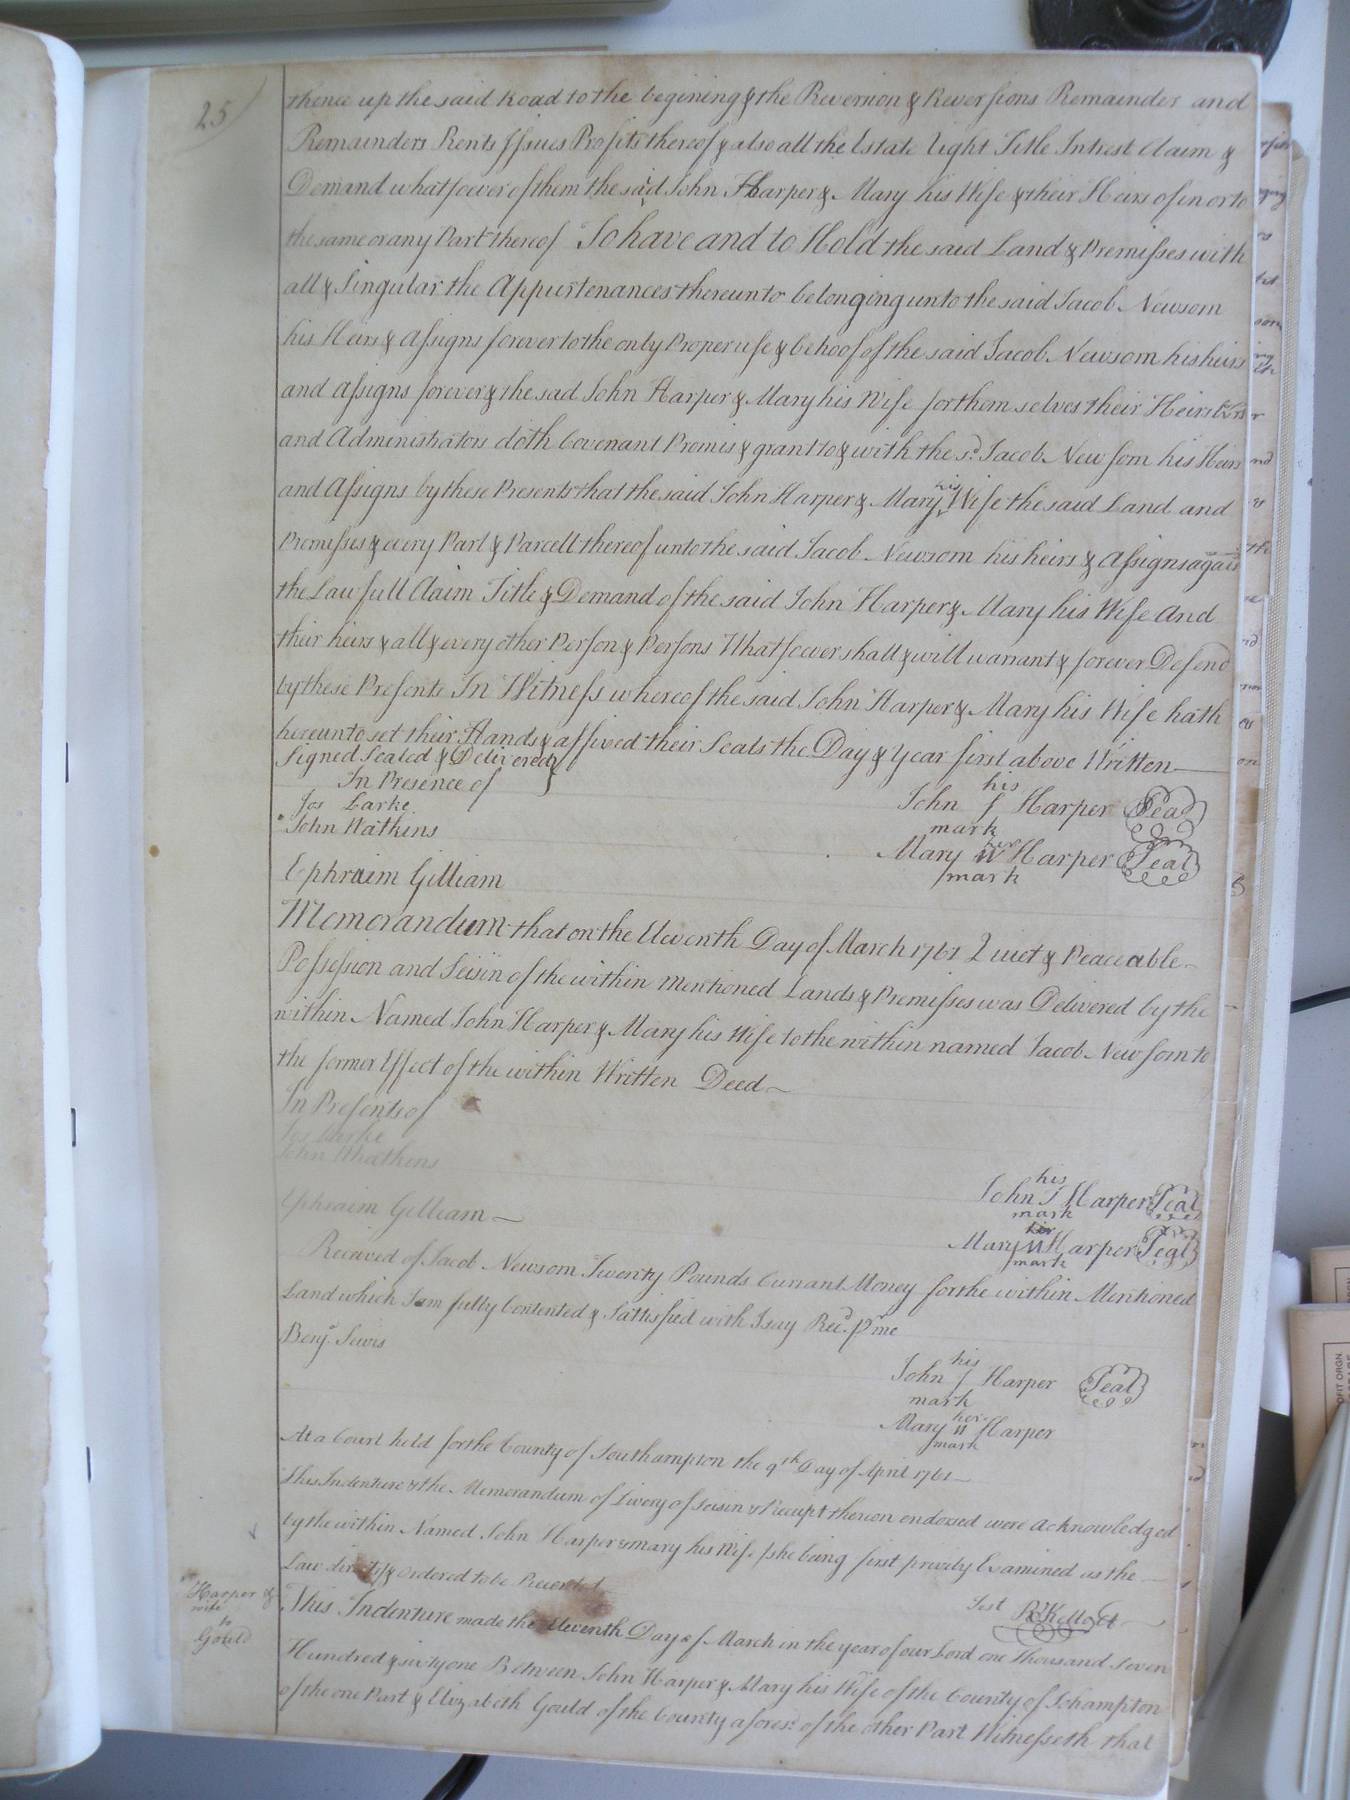 25
thence up the said Road to the begining & the Reversion & Reversions Remainder and
Remainders Rents Issues Profits thereof & also all the Estate Right Title Intrest Claim &
Demand whatsoever of them the said John Harper & Mary his Wife & their Heirs of in or to
the same or any Part thereof To have and to Hold the said Land & Premisses with
all & Singular the Appurtenances thereunto belonging unto the said Jacob Newsom
his Heirs & Assigns forever to the only Proper use & behoof of the said Jacob Newsom his heirs
and Assigns forever & the sad John Harper & Mary his Wife for them selves their Heirs Exrs
and Administrators doth Covenant Promis & grant to & with the sd. Jacob Newsom his Heirs
and Assigns by these Presents that the said John Harper & Mary his Wife the said Land and
Premisses & every Part & Parcell thereof unto the said Jacob Newsom his heirs & Assigns against
the Lawfull Claim Title & Demand of the said John Harper & Mary his Wife And
their heirs & all & every other Person & Persons Whatsoever shall & will warrant & forever Defend
by these Presents In Witness whereof the said John Harper & Mary his Wife hath
hereunto set their Hands & affixed their Seals the Day & Year first above Written
Signed Sealed & Delivered
In Presence of
Jos Larke
John Watkins
Ephraim Gilliam
his
John J Harper Seal
mark
her
Mary Harper Seal
mark
Memorandum that on the Eleventh Day of March 1761 Quiet & Peaceable
Possession and Seisin of the within mentioned Lands & Premisses was Delivered by the
within Named John Harper & Mary his Wife to the within named Jacob Newsom to
the former Effect of the within Written Deed
In Presents of
Jos Larke
John Whatkins
Ephraim Gilliam
his
John J Harper Seal
mark
her
Mary Harper Seal
mark
Received of Jacob Newsom Twenty Pounds Currant Money for the within Mentioned
Land which I am fully Contented & Sattisfied with I say Recd. pr me
Benj. Lewis
his
John J Harper Seal
mark
her
Mary Harper
mark
At a Court held for the County of Southampton the 9th Day of April 1761
This Indenture & the Memorandum of Livery of Seisin & Receipt thereon endorsed were acknowledged
by the within Named John Harper & Mary his Wife she being first privily Examined as the
Law directs & ordered to be Recorded
Test R Kello
Harper &
wife
to
Gould
This Indenture made the Eleventh Day of March in the year of our Lord one Thousand Seven
Hundred & sixty one Between John Harper & Mary his Wife of the County of Sohampton
of the one Part & Elizabeth Gould of the County afores.d of the other Part Witnesseth that